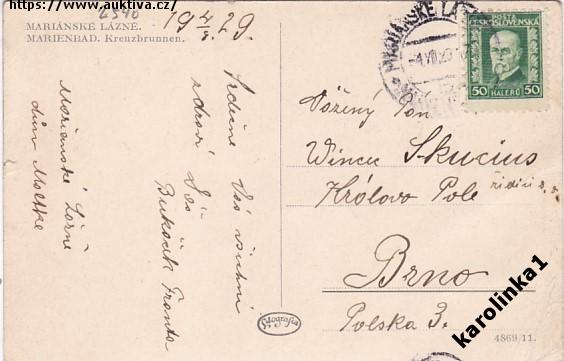 https://www.auktiva.cz/
6540
MARIÁNSKÉ LÁZNĚ.
MARIENBAD. Kreuzbrunnen.
19 4/8 29.
Srdečně Vás všichni
zdraví Váš
Bukáček Franta
Mariánské Lázně
dům Moltke
MARIÁNSKÉ LÁZ
-4.VIII.29
POŠTA
ČESKOSLOVENSKÁ
50 HALÉŘŮ 50
Vážený Pan
Wincec Skucius
Královo Pole řídící
Brno
Polská 3.
Fotografia
4869/11.
karolinka1